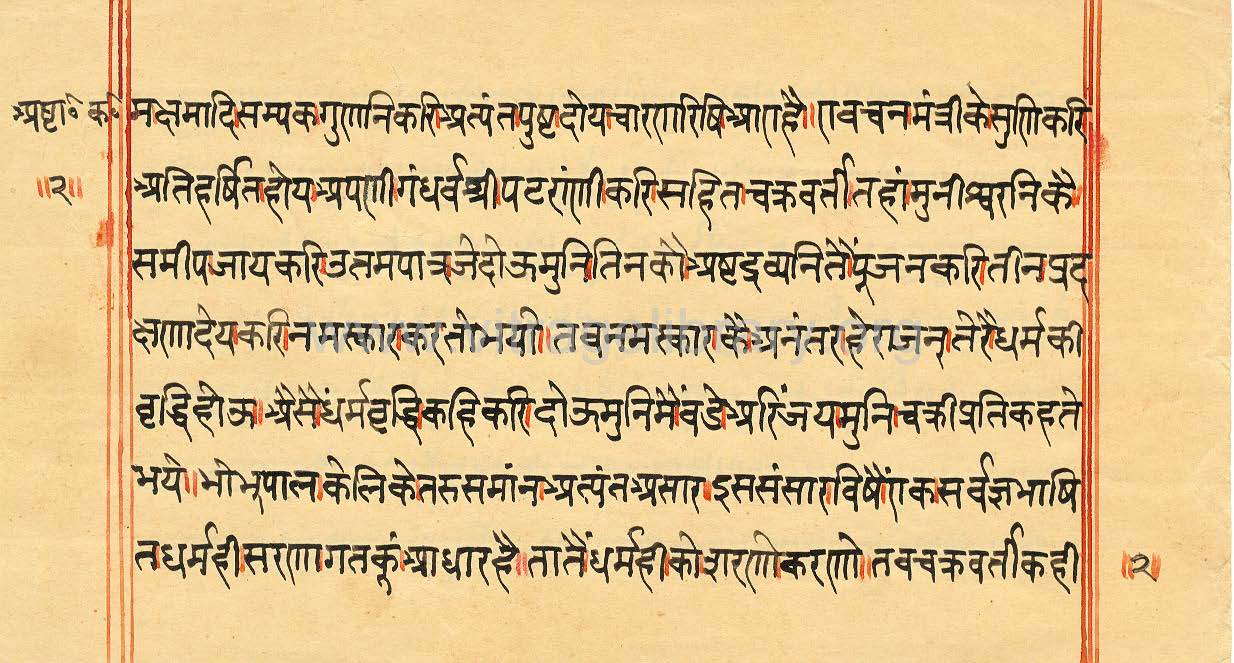 अष्टा॰ क॰
॥२॥
म क्षमादि सम्यक गुणनि करि अत्यंत पुष्ट दोय चारण रिषि आए है॥ ए वचन मंत्री के सुणि करि
अति हर्षित होय अपणी गंधर्व श्री पटरांणी करि सहित चक्रवर्ती तहां मुनीश्वरनि कै
समीप जाय करि उत्तम पात्र जे दोऊ मुनि तिन कौ अष्ट द्रव्यनि तैं पूजन करि तीन प्रद
क्षणा देय करि नमस्कार करतो भयो॥ तब नमस्कार कै अनंतर हे राजन् तेरै धर्म की
वृद्धि होऊ॥ औसैं धर्म वृद्धि कहि करि दोऊ मुनि मैं वंडे अरिंजय मुनि चक्री प्रति कहते
भये॥ भो भूपाल केलि के तरु समांन अत्यंत असार इस संसार विषैं एक सर्वज्ञ भाषि
त धर्म ही सरणागत कूं आधार है॥ तातैं धर्म ही को शरणो करणो॥ तब चक्रवर्ती कही
॥२॥
www.vitragvani.org